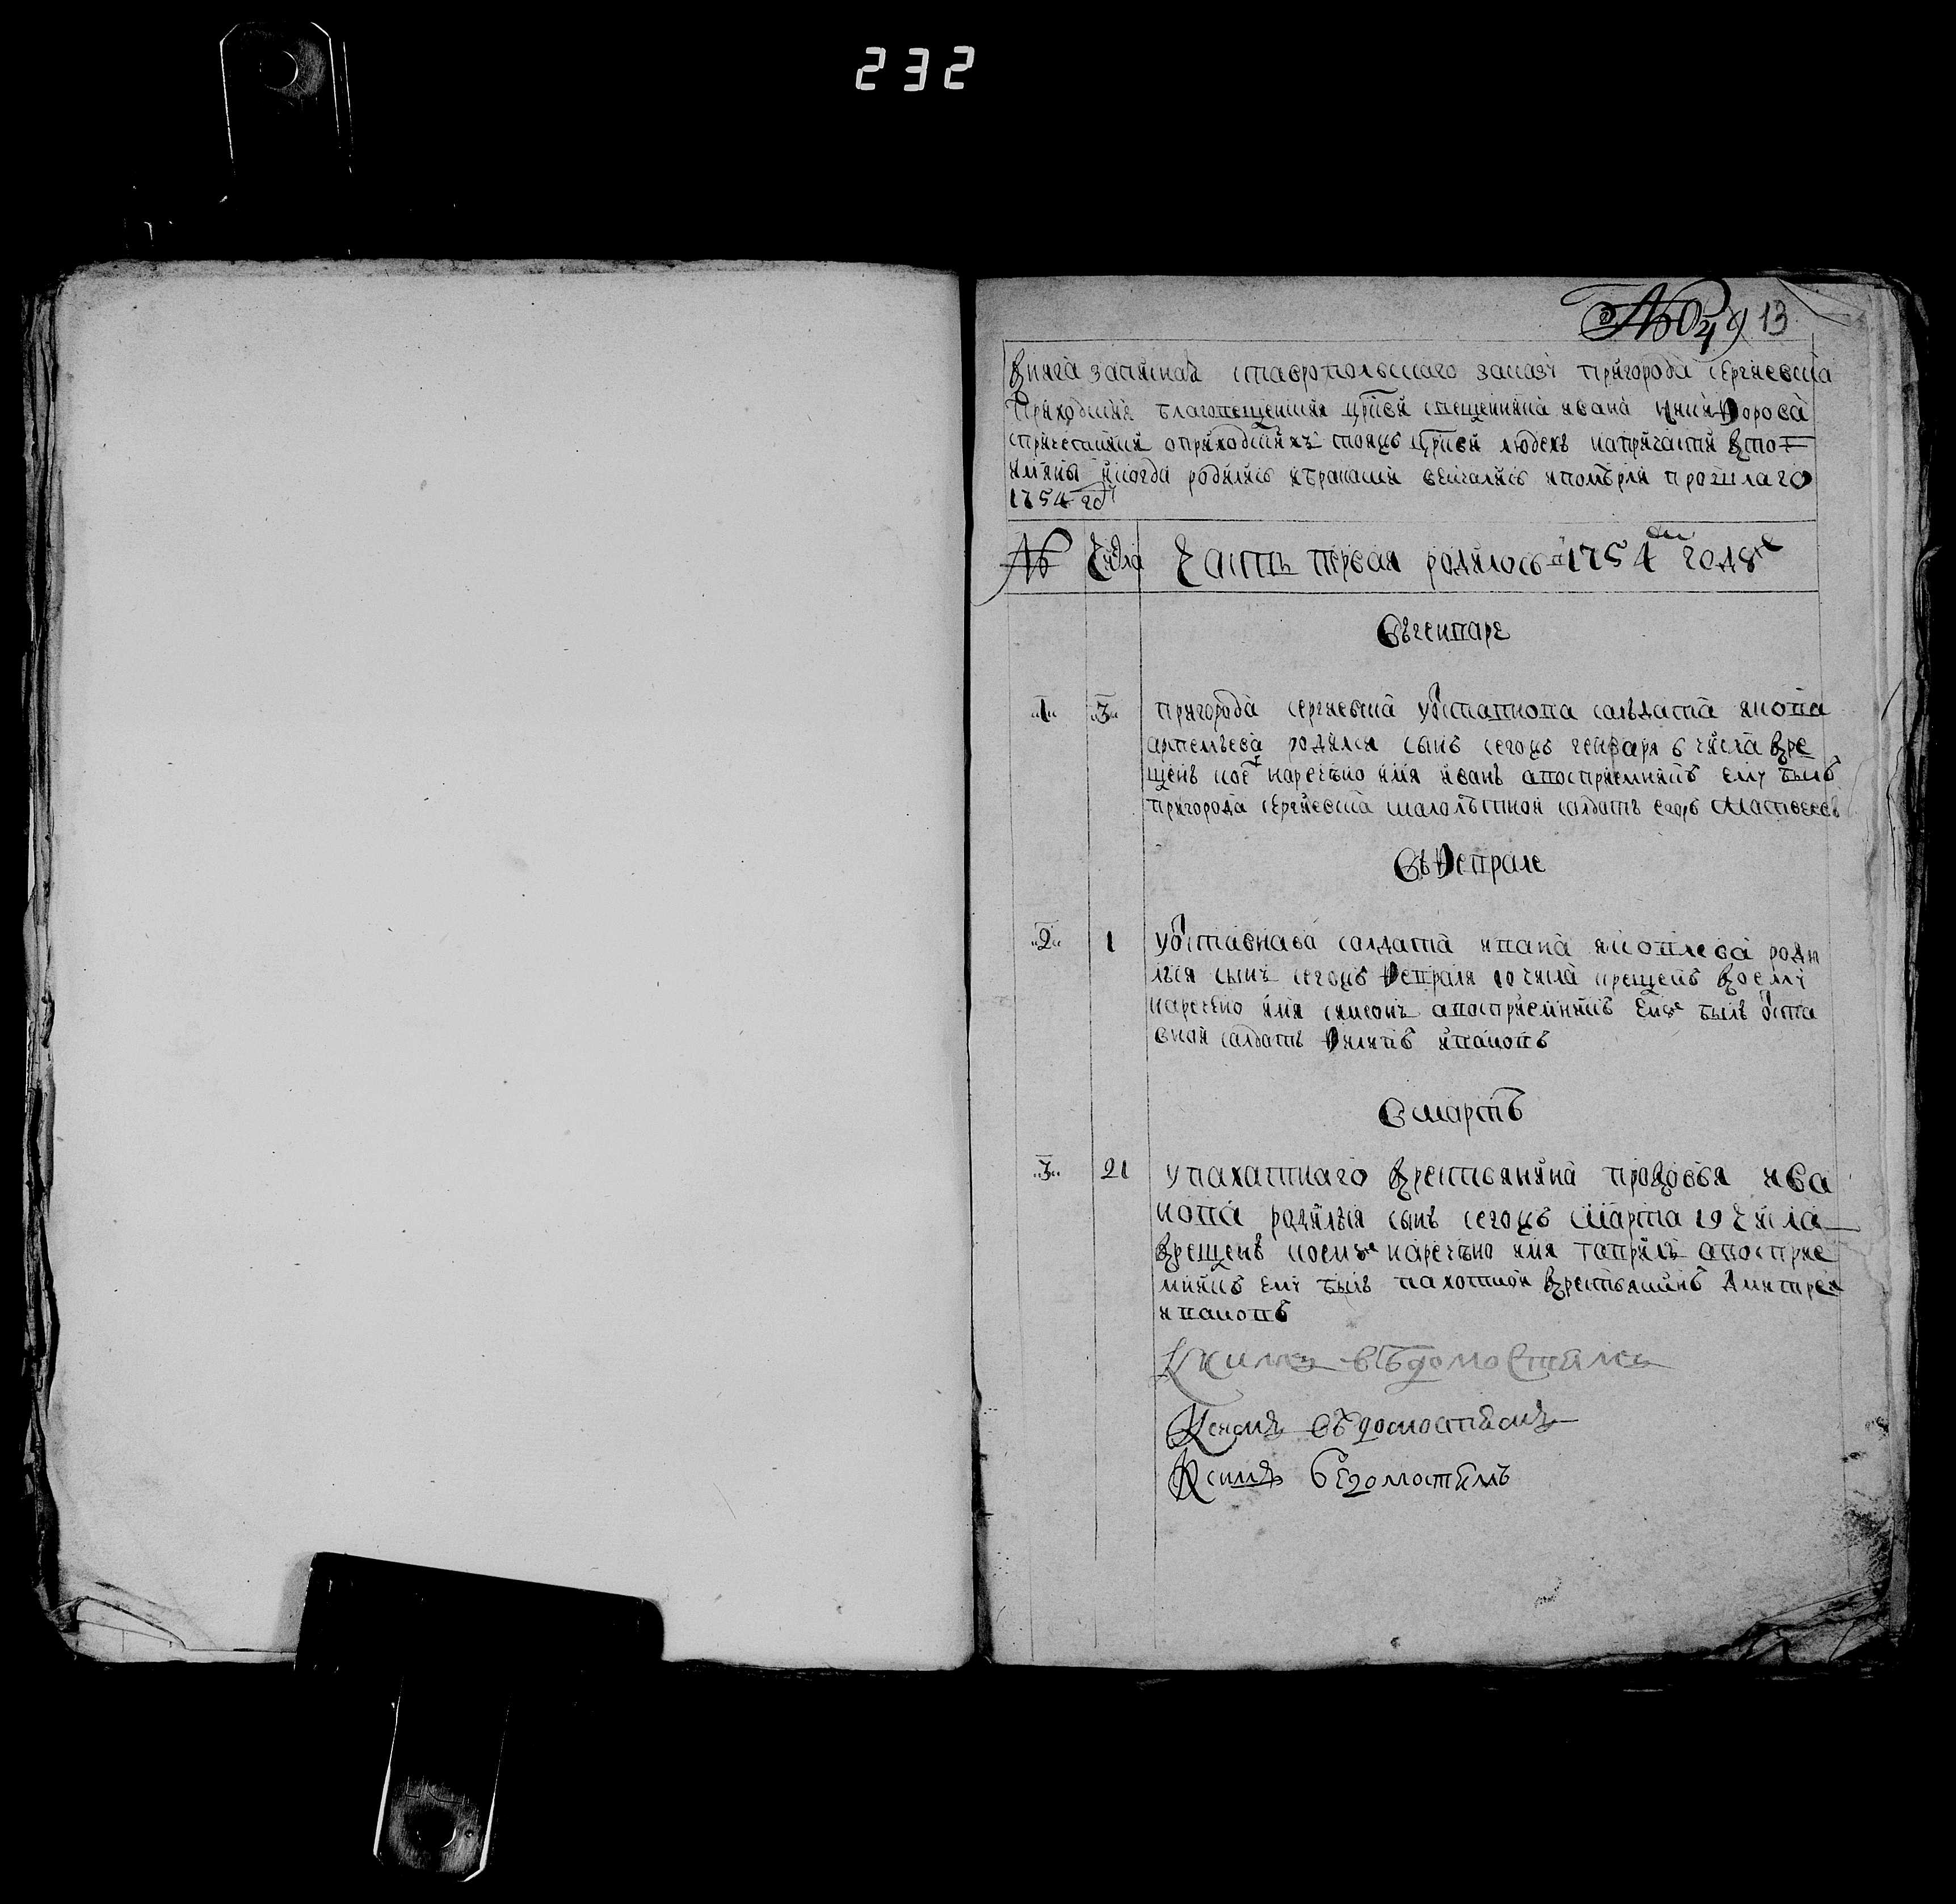 232
№ 49 13
Книга записная ставропольскаго заказу пригорода сергиевска
Приходския благовещенския цркви священника ивана никифорова
спричетники оприходскихъ тояжъ цркви людехъ натричасти кто
имяны и когда родились ибракамы венчались ипомѣрли прошлаго
1754 году
№ Числа Часть первая родилось в 1754 м годѣ
Въгенваре
1 3 пригорода сергиевска уотставнова салдата якова
артемьева родился сынъ сегожъ генваря 6 числа кре
щенъ коему наречено имя иванъ авосприемникъ ему былъ
пригорода сергиевска салдатъ егоръ Матвеевъ
Въ Феврале
2 1 уотставнава салдата ивана яковлева роди
лся сынъ сегожъ Февраля 10 числа крещенъ коему
наречено имя симеонъ авосприемникъ ему былъ отста
вной салдатъ Филипъ ивановъ
В мартѣ
3 21 упахатнаго крестьянина прокофья ива
нова родился сынъ сегожъ Марта 29 числа
крещенъ коему наречено имя гаврилъ авосприе
мникъ ему былъ пахотной крестьянинъ Димитреи
ивановъ
Ксимъ вѣдомостямъ
Ксимъ вѣдомостямъ
Ксимъ ведомостямъ